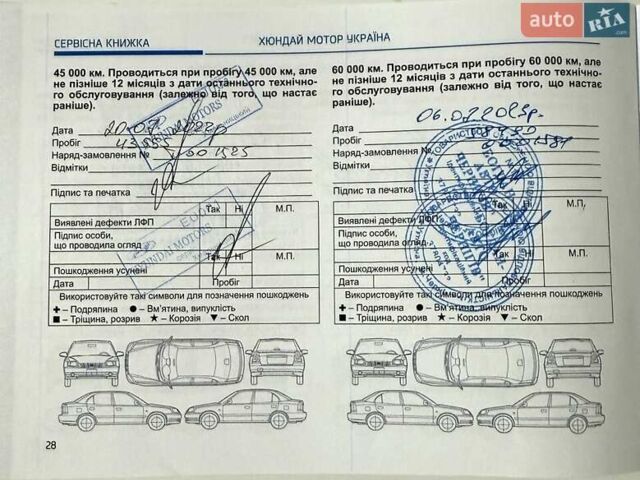 auto RIA .com
СЕРВІСНА КНИЖКА
ХЮНДАЙ МОТОР УКРАЇНА
45 000 км. Проводиться при пробігу 45 000 км, але
не пізніше 12 місяців з дати останнього технічно-
го обслуговування (залежно від того, що настає
раніше).
Дата
Пробіг
Наряд-замовлення №
Відмітки
Підпис та печатка
HYUNDAI MOTORS
Так Ні М.П.
Виявлені дефекти ЛФП
Підпис особи,
що проводила огляд
HYUNDAI MOTORS
Так Ні М.П.
Пошкодження усунені
Дата Пробіг
Використовуйте такі символи для позначення пошкоджень
✚ – Подряпина ● – Вм'ятина, випуклість
■ – Тріщина, розрив ★ – Корозія ▼ – Скол
60 000 км. Проводиться при пробігу 60 000 км, але
не пізніше 12 місяців з дати останнього технічно-
го обслуговування (залежно від того, що настає
раніше).
06.07.2023р.
Дата
Пробіг
Наряд-замовлення №
Відмітки
Підпис та печатка
Так Ні М.П.
Виявлені дефекти ЛФП
Підпис особи,
що проводила огляд
Так Ні М.П.
Пошкодження усунені
Дата Пробіг
Використовуйте такі символи для позначення пошкоджень
✚ – Подряпина ● – Вм'ятина, випуклість
■ – Тріщина, розрив ★ – Корозія ▼ – Скол
28